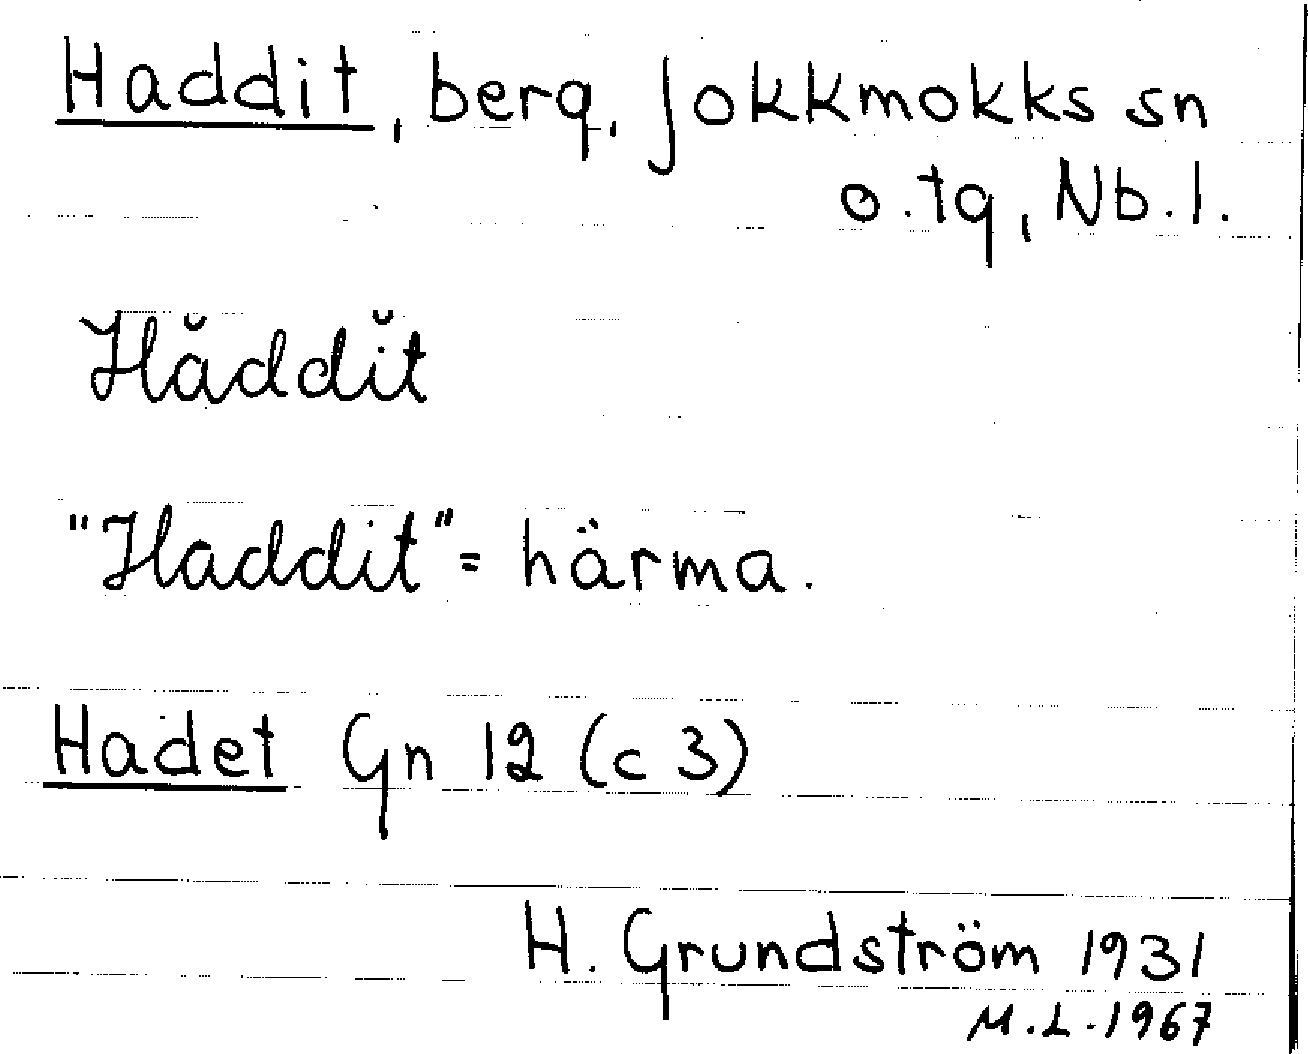 Haddit, berg, Jokkmokks sn
o. tg, Nb. l.
Hăddĭt
"Haddit" = härma.
Hadet Gn 12 (c 3)
H. Grundström 1931
M.L. 1967